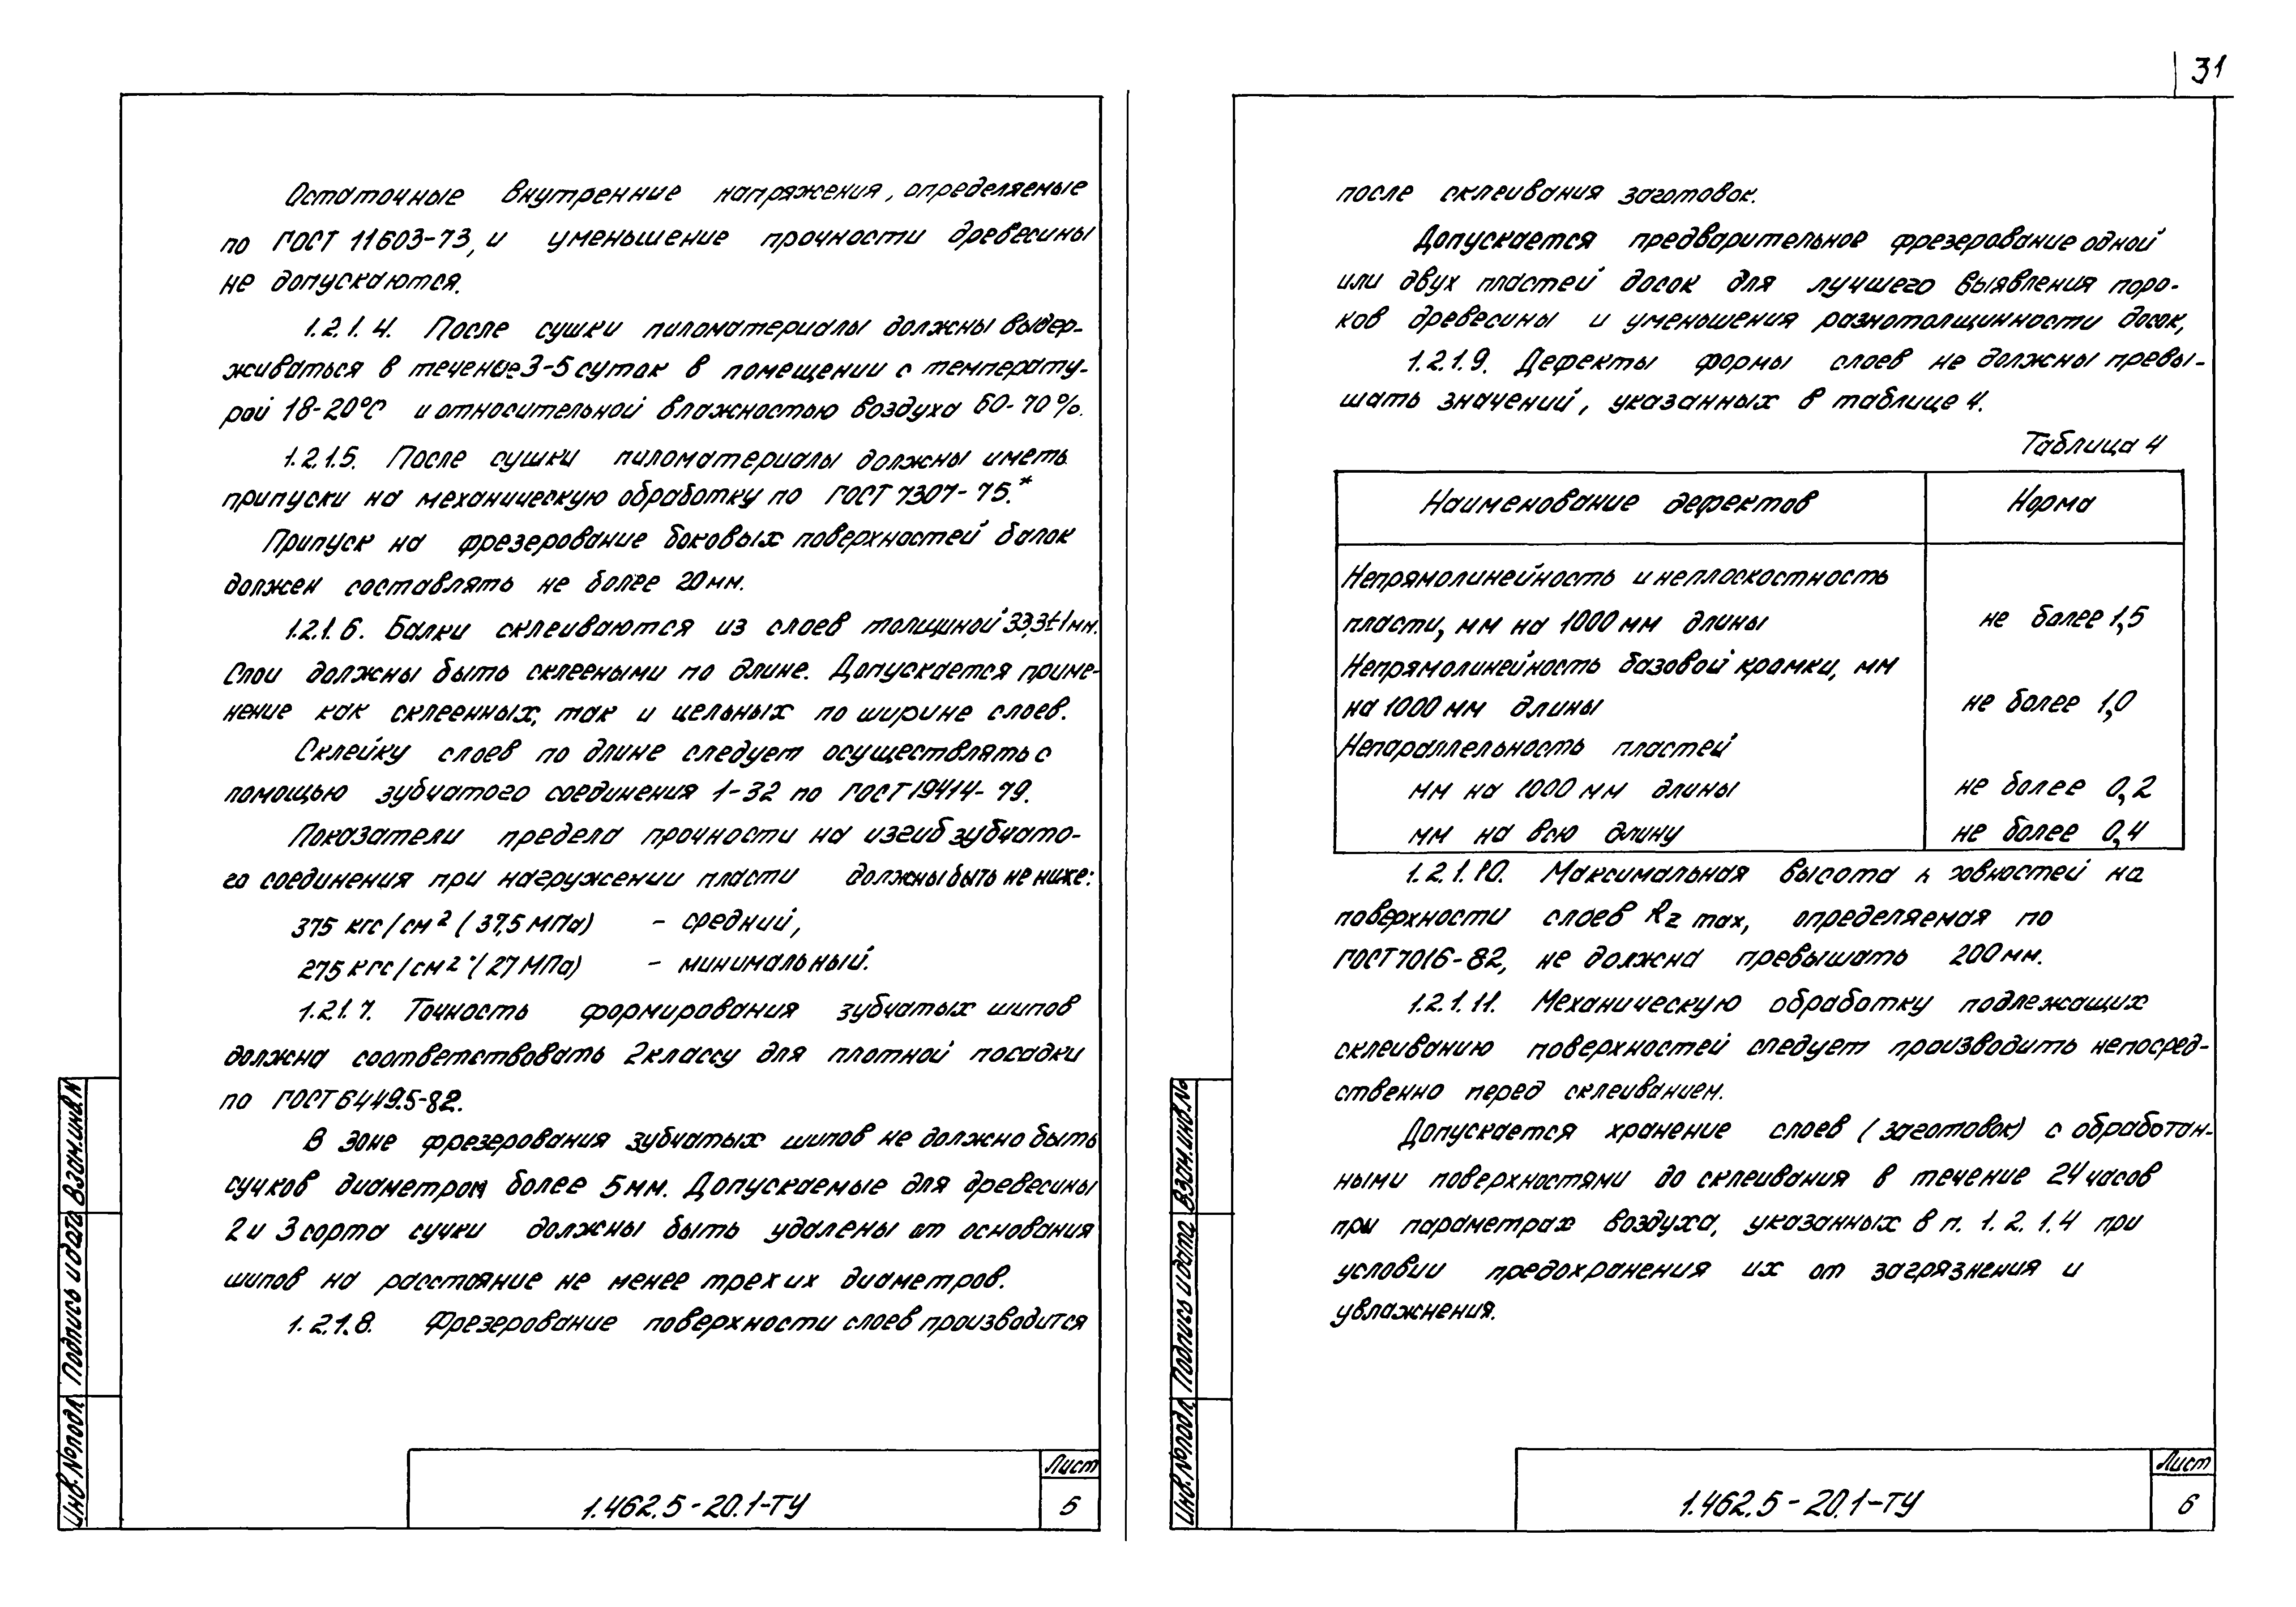 31
Остаточные внутренние напряжения, определяемые
по ГОСТ 11603-73, и уменьшение прочности древесины
не допускаются.
1.2.1.4. После сушки пиломатериалы должны выдер-
живаться в течение 3-5 суток в помещении с температу-
рой 18-20°С и относительной влажностью воздуха 60-70%.
1.2.1.5. После сушки пиломатериалы должны иметь
припуски на механическую обработку по ГОСТ 7307-75.*
Припуск на фрезерование боковых поверхностей балок
должен составлять не более 20 мм.
1.2.1.6. Балки склеиваются из слоев толщиной 33,3±1 мм.
Слои должны быть склееными по длине. Допускается приме-
нение как склеенных, так и цельных по ширине слоев.
Склейку слоев по длине следует осуществлять с
помощью зубчатого соединения 1-32 по ГОСТ 19414-79.
Показатели предела прочности на изгиб зубчато-
го соединения при нагружении пласти должны быть не ниже:
375 кгс/см² (37,5 МПа) - средний,
275 кгс/см² (27 МПа) - минимальный.
1.2.1.7. Точность формирования зубчатых шипов
должна соответствовать 2 классу для плотной посадки
по ГОСТ 6449.5-82.
В зоне фрезерования зубчатых шипов не должно быть
сучков диаметром более 5 мм. Допускаемые для древесины
2 и 3 сорта сучки должны быть удалены от основания
шипов на расстояние не менее трех их диаметров.
1.2.1.8. Фрезерование поверхности слоев производится
Инв. № подл. Подпись и дата Взам. инв. №
1.462.5-20.1-ТУ
Лист
5
после склеивания заготовок.
Допускается предварительное фрезерование одной
или двух пластей досок для лучшего выявления поро-
ков древесины и уменьшения разнотолщинности досок,
1.2.1.9. Дефекты формы слоев не должны превы-
шать значений, указанных в таблице 4.
Таблица 4
Наименование дефектов Норма
Непрямолинейность и неплоскостность
пласти, мм на 1000 мм длины не более 1,5
Непрямолинейность базовой кромки, мм
на 1000 мм длины не более 1,0
Непараллельность пластей
мм на 1000 мм длины не более 0,2
мм на всю длину не более 0,4
1.2.1.10. Максимальная высота на
поверхности слоев Rz max, определяемая по
ГОСТ 7016-82, не должна превышать 200 мм.
1.2.1.11. Механическую обработку подлежащих
склеиванию поверхностей следует производить непосред-
ственно перед склеиванием.
Допускается хранение слоев (заготовок) с обработан-
ными поверхностями до склеивания в течение 24 часов
при параметрах воздуха, указанных в п. 1.2.1.4 при
условии предохранения их от загрязнения и
увлажнения.
Инв. № подл. Подпись и дата Взам. инв. №
1.462.5-20.1-ТУ
Лист
6